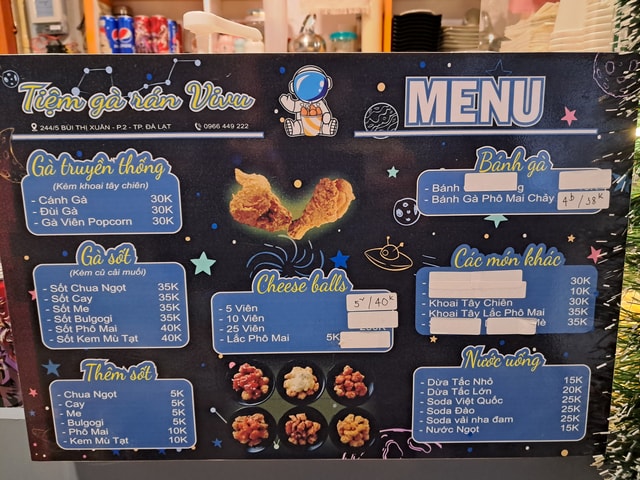 Tiệm gà rán Vivu
244/5 BÙI THỊ XUÂN - P.2 - TP. ĐÀ LẠT 0966 449 222
MENU
Gà truyền thống
(Kèm khoai tây chiên)
- Cánh Gà 30K
- Đùi Gà 30K
- Gà Viên Popcorn 30K
Gà sốt
(Kèm củ cải muối)
- Sốt Chua Ngọt 35K
- Sốt Cay 35K
- Sốt Me 35K
- Sốt Bulgogi 35K
- Sốt Phô Mai 40K
- Sốt Kem Mù Tạt 40K
Thêm sốt
- Chua Ngọt 5K
- Cay 5K
- Me 5K
- Bulgogi 5K
- Phô Mai 10K
- Kem Mù Tạt 10K
Cheese balls
- 5 Viên 5v/40k
- 10 Viên
- 25 Viên
- Lắc Phô Mai 5K
Bánh gà
- Bánh
- Bánh Gà Phô Mai Chảy
Các món khác
30K
10K
- Khoai Tây Chiên 30K
- Khoai Tây Lắc Phô Mai 35K
35K
Nước uống
- Dừa Tắc Nhỏ 15K
- Dừa Tắc Lớn 20K
- Soda Việt Quất 25K
- Soda Đào 25K
- Soda vải nha đam 25K
- Nước Ngọt 15K